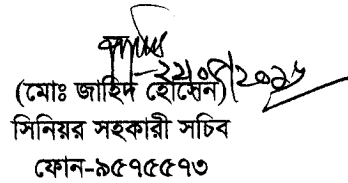 ২২/০৫/২০২৫
(মোঃ জাহিদ হোসেন)
সিনিয়র সহকারী সচিব
ফোন-৯৫৭৫৫৭৩